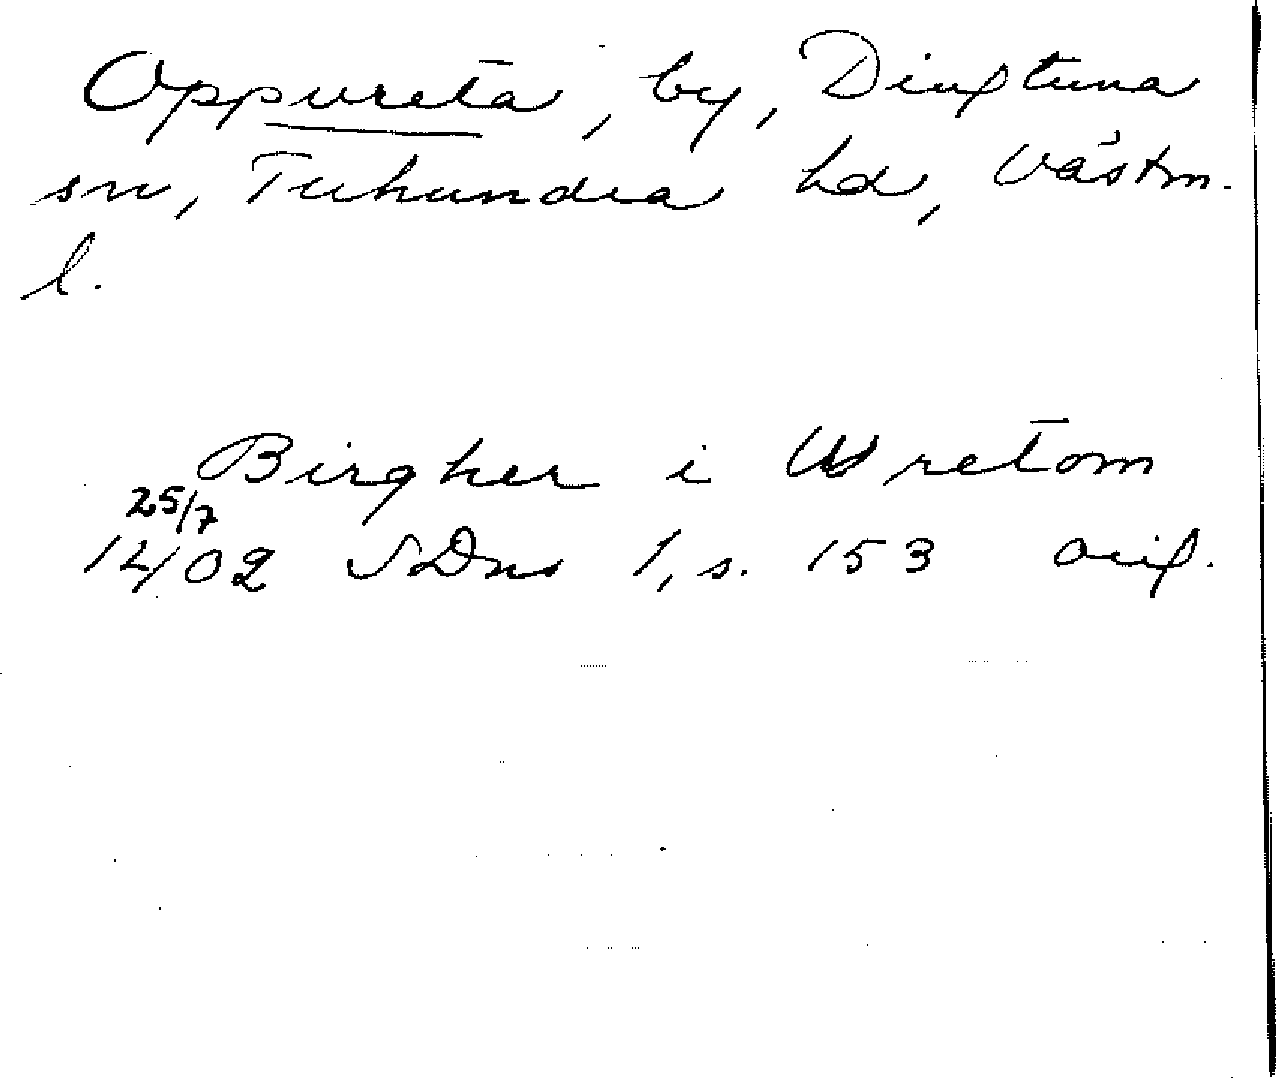 Oppvreta, by, Dingtuna
sn, Tuhundra hd, Västm.
l.
Birgher i Wretom
25/7
1402 SDns 1, s. 153 orig.